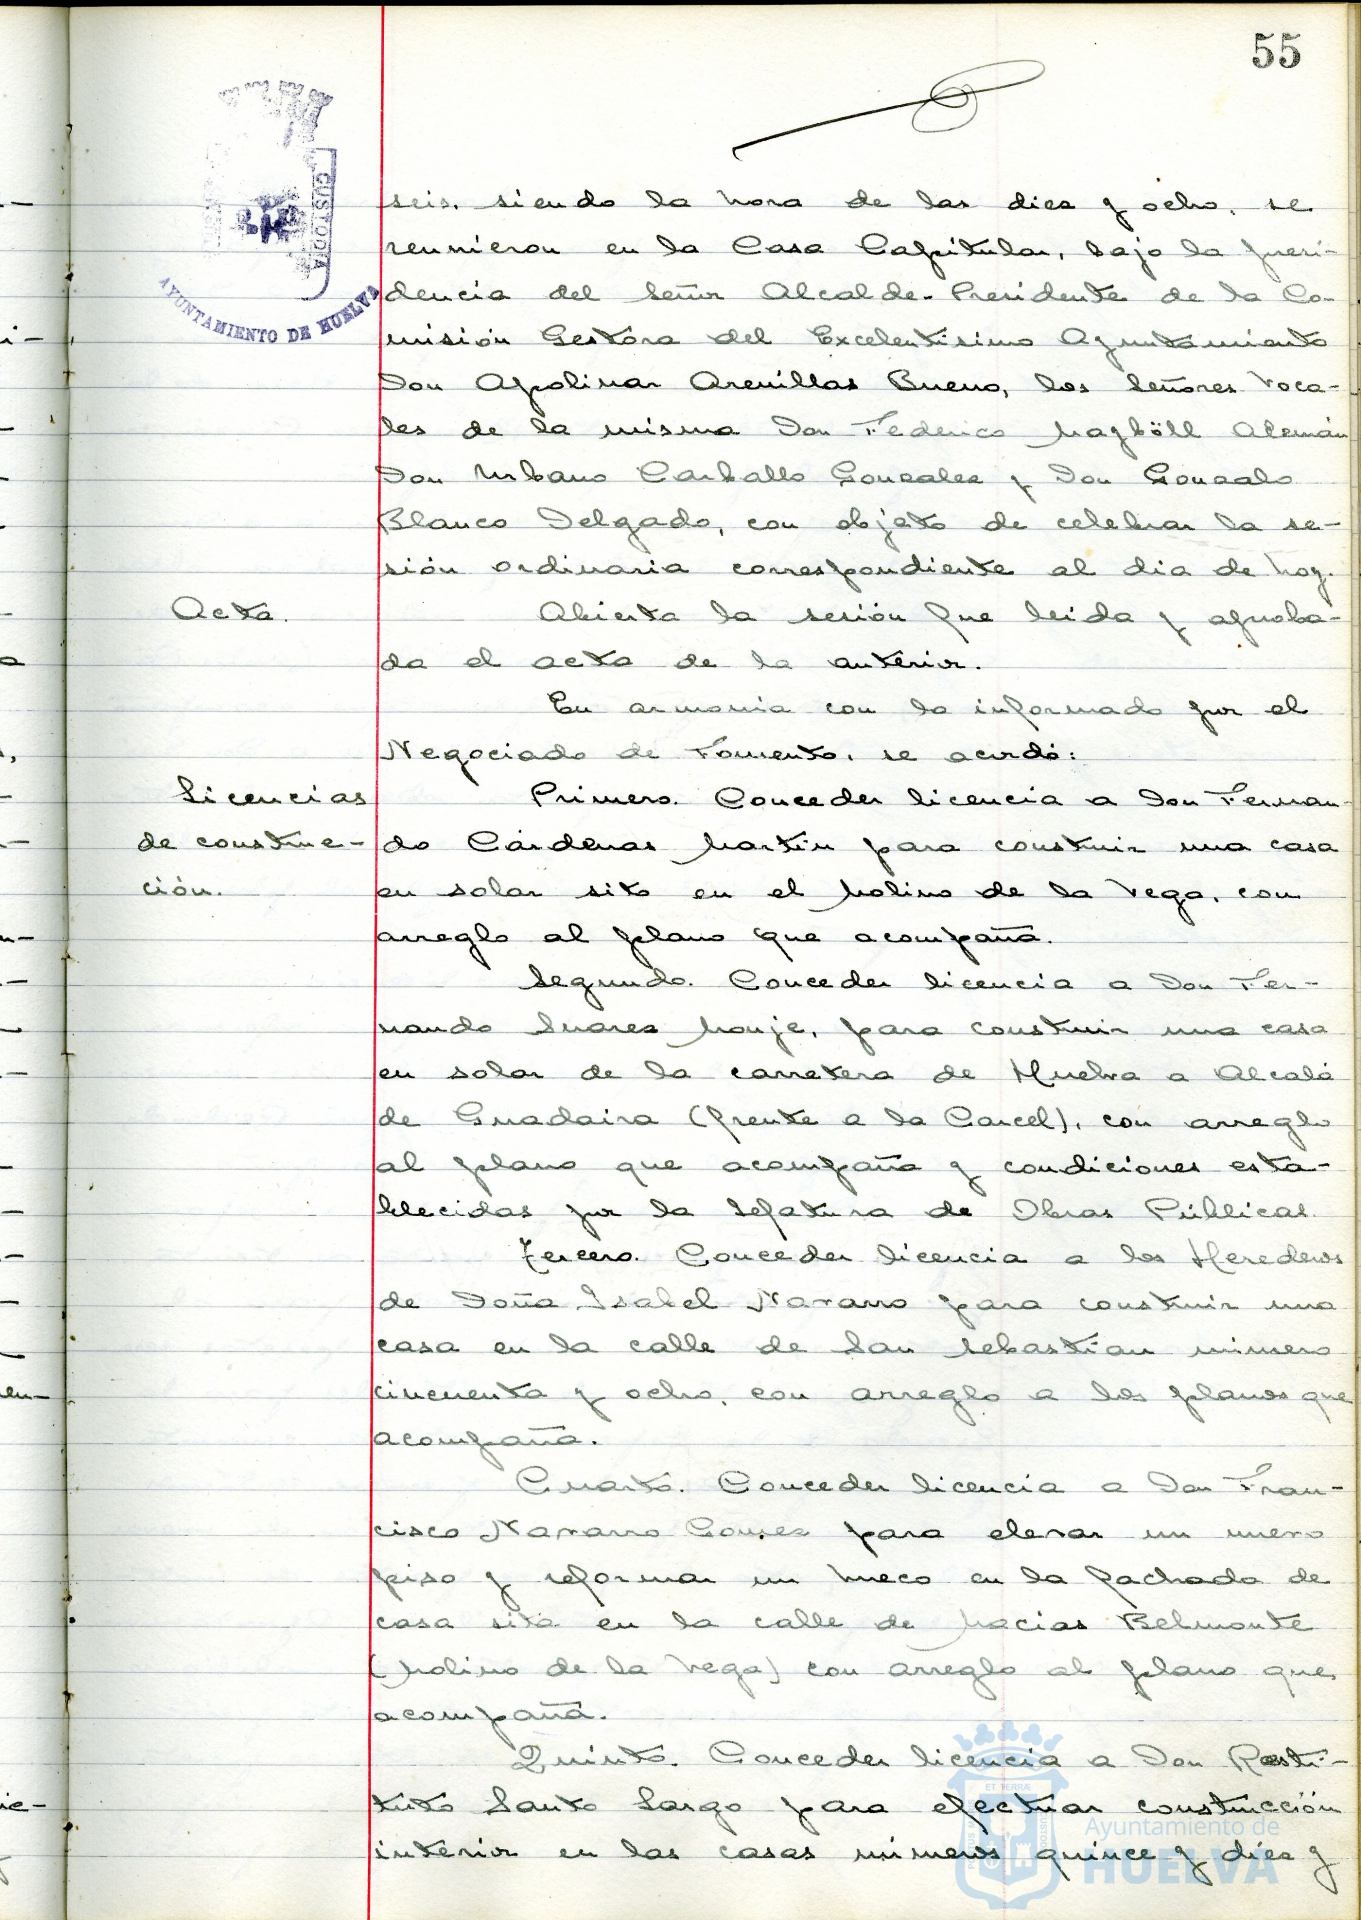 55
CUSTODIA
AYUNTAMIENTO DE HUELVA
seis, siendo la hora de las diez y ocho, se
reunieron en la Casa Capitular, bajo la presi-
dencia del Señor Alcalde-Presidente de la Co-
misión Gestora del Excelentísimo Ayuntamiento
Don Apolinar Arenillas Bueno, los Señores Voca-
les de la misma Don Federico Magböll Alemán
Don Urbano Carballo Gonzalez y Don Gonzalo
Blanco Delgado, con objeto de celebrar la se-
sión ordinaria correspondiente al dia de hoy.
Acta. Abierta la sesión fue leida y aproba-
da el acta de la anterior.
En armonia con lo informado por el
Negociado de Fomento, se acordó:
Licencias Primero. Conceder licencia a Don Fernan-
de construc- do Cárdenas Martín para construir una casa
ción. en solar sito en el Molino de la Vega, con
arreglo al plano que acompaña.
Segundo. Conceder licencia a Don Fer-
nando Suarez Monje, para construir una casa
en solar de la carretera de Huelva a Alcalá
de Guadaira (frente a la Carcel), con arreglo
al plano que acompaña y condiciones esta-
blecidas por la Jefatura de Obras Públicas.
Tercero. Conceder licencia a los Herederos
de Doña Isabel Navarro para construir una
casa en la calle de San Sebastian número
cincuenta y ocho, con arreglo a los planos que
acompaña.
Cuarto. Conceder licencia a Don Fran-
cisco Navarro Gomez para elevar un nuevo
piso y reformar un hueco en la fachada de
casa sita en la calle de Macias Belmonte
(Molino de la Vega) con arreglo al plano que
acompaña.
Quinto. Conceder licencia a Don Resti-
tuto Santo Largo para efectuar construcción
interior en las casas números quince y diez y
Ayuntamiento de
HUELVA